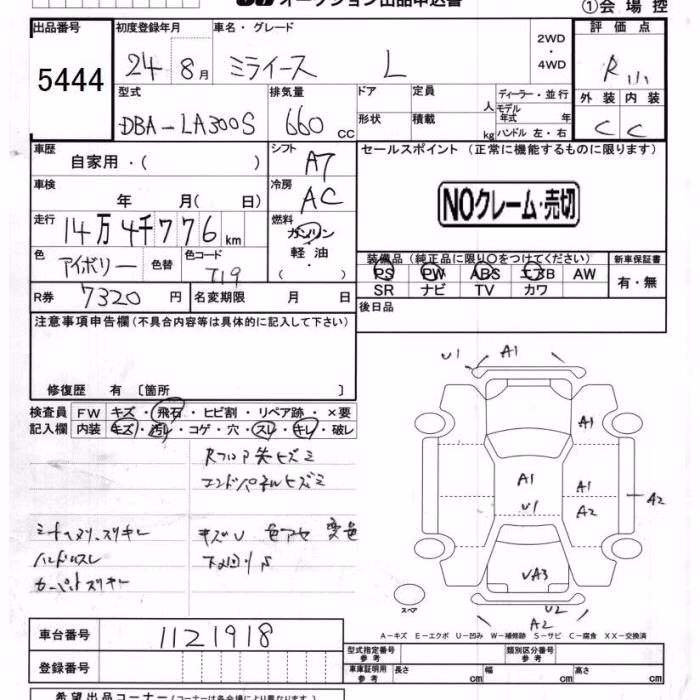 オークション出品申込書
①会場控
出品番号
5444
初度登録年月
24 8月
車名・グレード
ミライース L
2WD
・
4WD
評価点
R
外装 内装
C C
型式
DBA-LA300S
排気量
660 cc
ドア 定員 人
形状 積載 kg
ディーラー・並行
モデル年式 年
ハンドル 左・右
車歴
自家用・( )
シフト
AT
セールスポイント (正常に機能するものに限ります)
NOクレーム・売切
車検
年 月( 日)
冷房
AC
走行
14万4千776km
燃料
ガソリン
軽油
( )
色
アイボリー
色替
色コード
T19
装備品 (純正品に限り○をつけてください)
PS PW ABS エアB AW
SR ナビ TV カワ
新車保証書
有・無
R券 7320円
名変期限 月 日
後日品
注意事項申告欄 (不具合内容等は具体的に記入して下さい)
修復歴 有 〔箇所 〕
検査員記入欄
FW キズ・飛石・ヒビ割・リペア跡・×要
内装 キズ・汚れ・コゲ・穴・スレ・キレ・破レ
Rフロア先ヒズミ
エンドパネルヒズミ
キズU 色アセ 変色
下回りS
ハンドルスレ
カーペットスリキレ
U1 A1
A1
A1
U1
A1
A2
A2
UA3
U2
A2
スペア
A-キズ E-エクボ U-凹み W-補修跡 S-サビ C-腐食 XX-交換済
車台番号
1121918
登録番号
型式指定番号 参考
類別区分番号 参考
車庫証明用 参考
長さ cm 幅 cm 高さ cm
希望出品コーナー (コーナーは各会場により異なります)